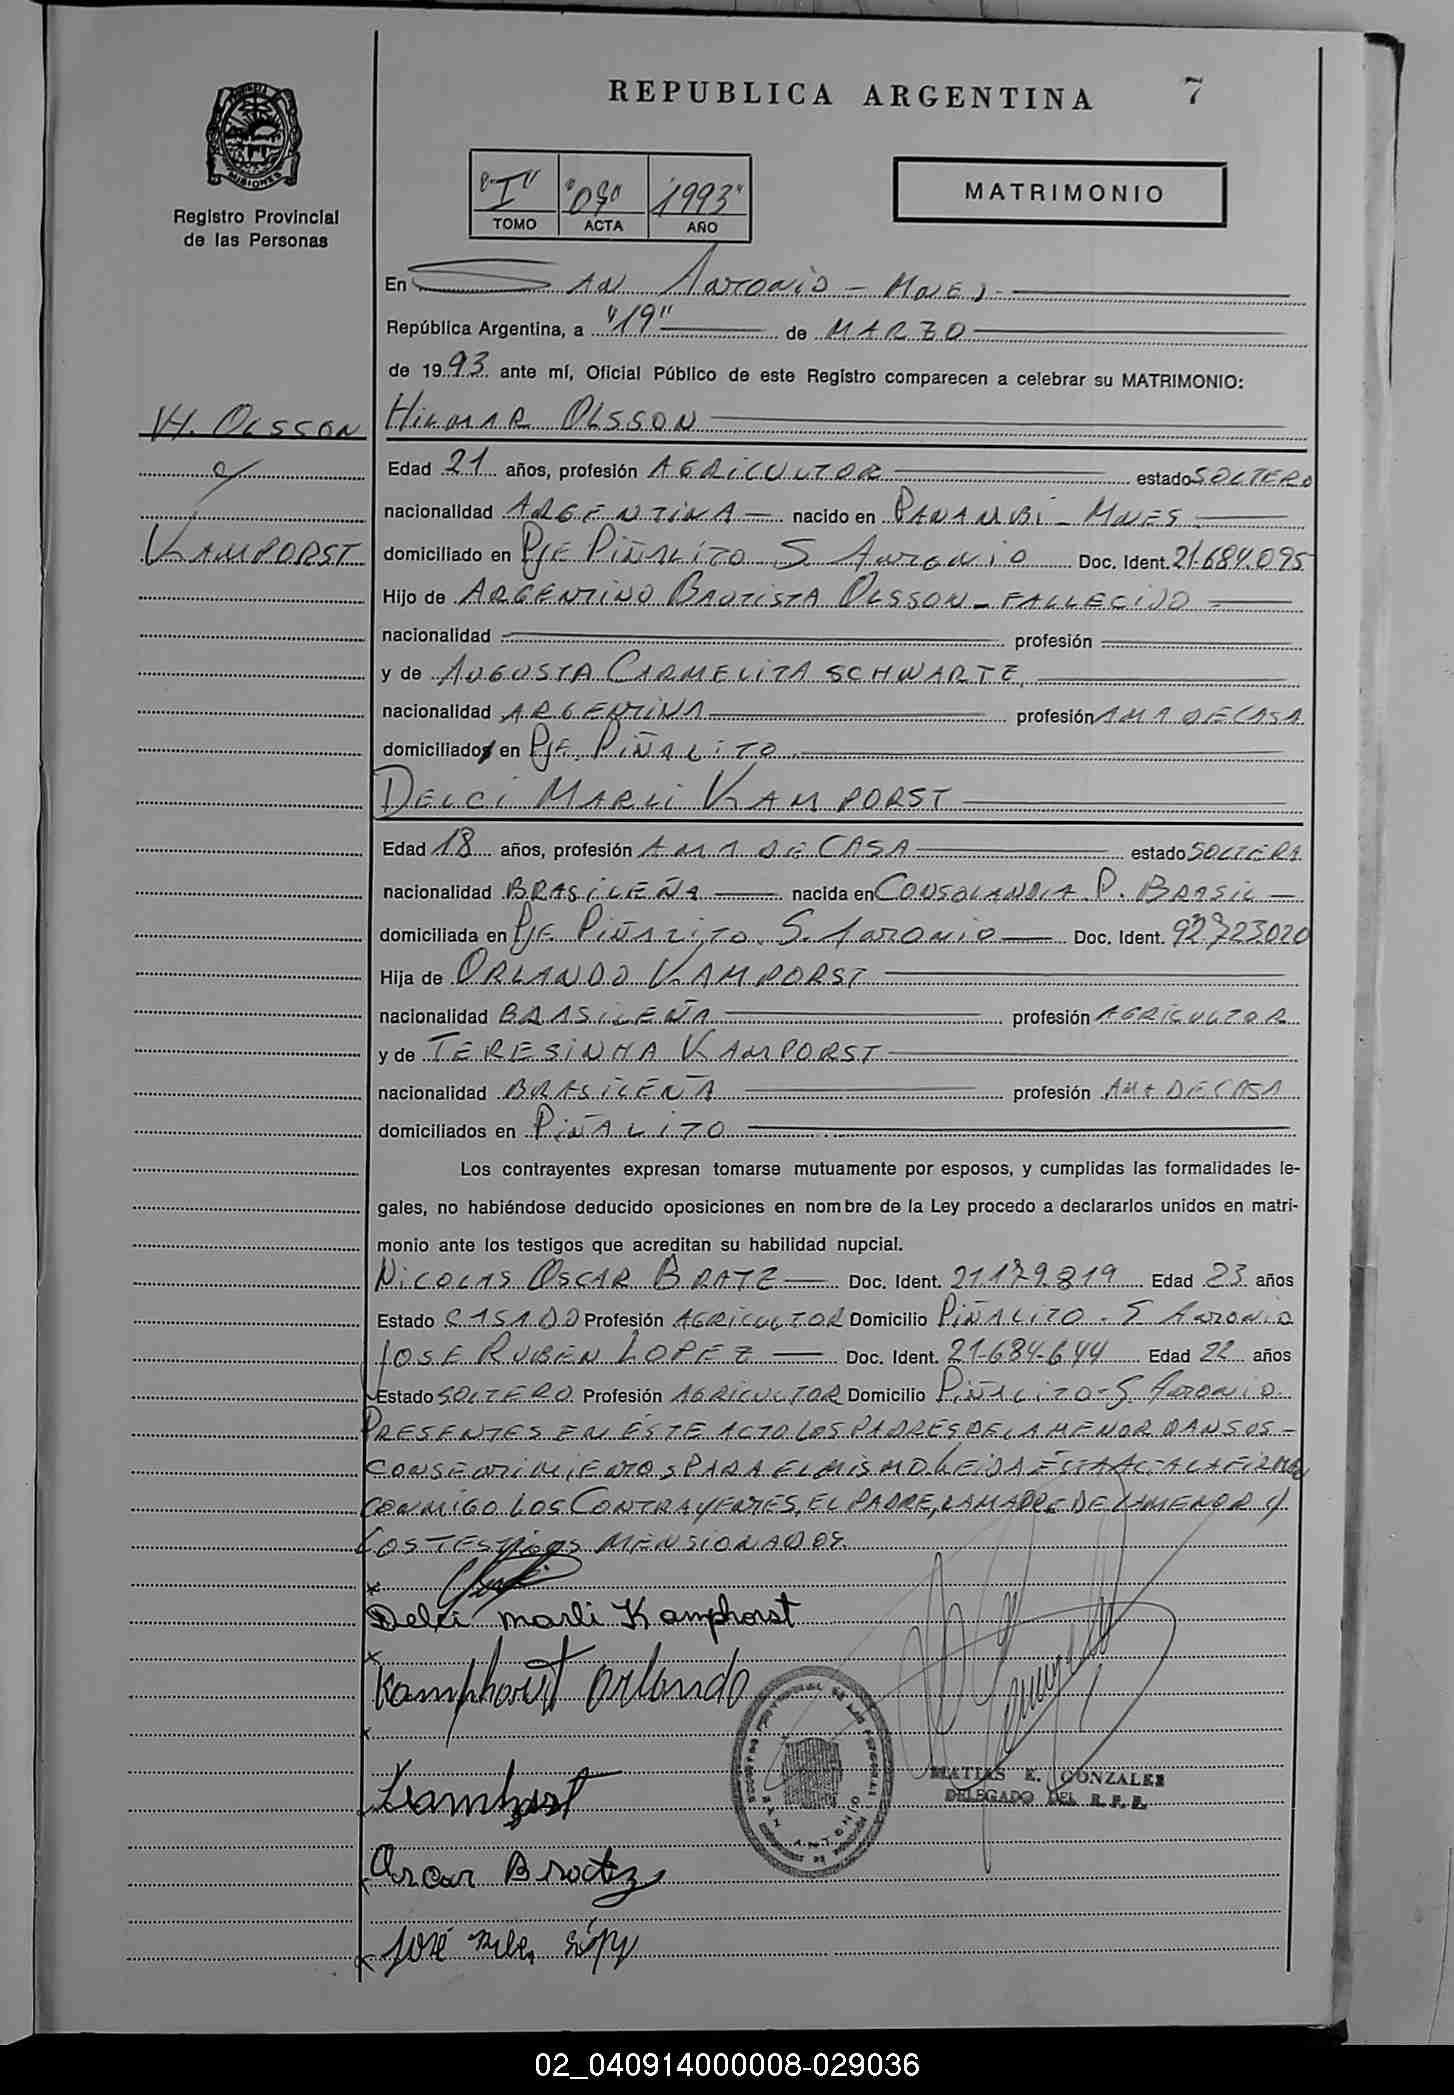 REPUBLICA ARGENTINA 7
MISIONES
Registro Provincial
de las Personas
"I" "07" "1993"
TOMO ACTA AÑO
MATRIMONIO
En SAN ANTONIO - MNES -
República Argentina, a "19" de MARZO
de 1993 ante mí, Oficial Público de este Registro comparecen a celebrar su MATRIMONIO:
H. OLSSON
HILMAR OLSSON
Edad 21 años, profesión AGRICULTOR estado SOLTERO
c/
nacionalidad ARGENTINA - nacido en PANAMBI - MNES -
KAMPORST
domiciliado en PJE PIÑALITO S. ANTONIO Doc. Ident. 21.684.095
Hijo de ARGENTINO BAUTISTA OLSSON - FALLECIDO -
nacionalidad profesión
y de AUGUSTA CARMELITA SCHWARTZ,
nacionalidad ARGENTINA profesión AMA DE CASA
domiciliados en PJE. PIÑALITO.
DELCI MARLI KAMPORST
Edad 18 años, profesión AMA DE CASA estado SOLTERA
nacionalidad BRASILEÑA nacida en CONSOLANDIA P. BRASIL -
domiciliada en PJE PIÑALITO S. ANTONIO Doc. Ident. 92723020
Hija de ORLANDO KAMPORST
nacionalidad BRASILEÑA profesión AGRICULTOR
y de TERESINHA KAMPORST
nacionalidad BRASILEÑA profesión AMA DE CASA
domiciliados en PIÑALITO
Los contrayentes expresan tomarse mutuamente por esposos, y cumplidas las formalidades le-
gales, no habiéndose deducido oposiciones en nombre de la Ley procedo a declararlos unidos en matri-
monio ante los testigos que acreditan su habilidad nupcial.
NICOLAS OSCAR BRATZ Doc. Ident. 21.179.819 Edad 23 años
Estado CASADO Profesión AGRICULTOR Domicilio PIÑALITO - S ANTONIO
JOSE RUBEN LOPEZ Doc. Ident. 21-684-644 Edad 22 años
Estado SOLTERO Profesión AGRICULTOR Domicilio PIÑALITO - S. ANTONIO.
PRESENTES EN ÉSTE ACTO LOS PADRES DE LA MENOR DAN SUS -
CONSENTIMIENTOS PARA EL MISMO. LEIDA ÉSTA ACTA LA FIRMAN
CONMIGO LOS CONTRAYENTES, EL PADRE, LA MADRE DE LA MENOR Y
LOS TESTIGOS MENSIONADOS.
Delci marli Kamphorst
Kamphorst Orlando
MATIAS E. GONZALEZ
DELEGADO DEL R.P.P.
SAN ANTONIO
Oscar Bratz
José
02_040914000008-029036